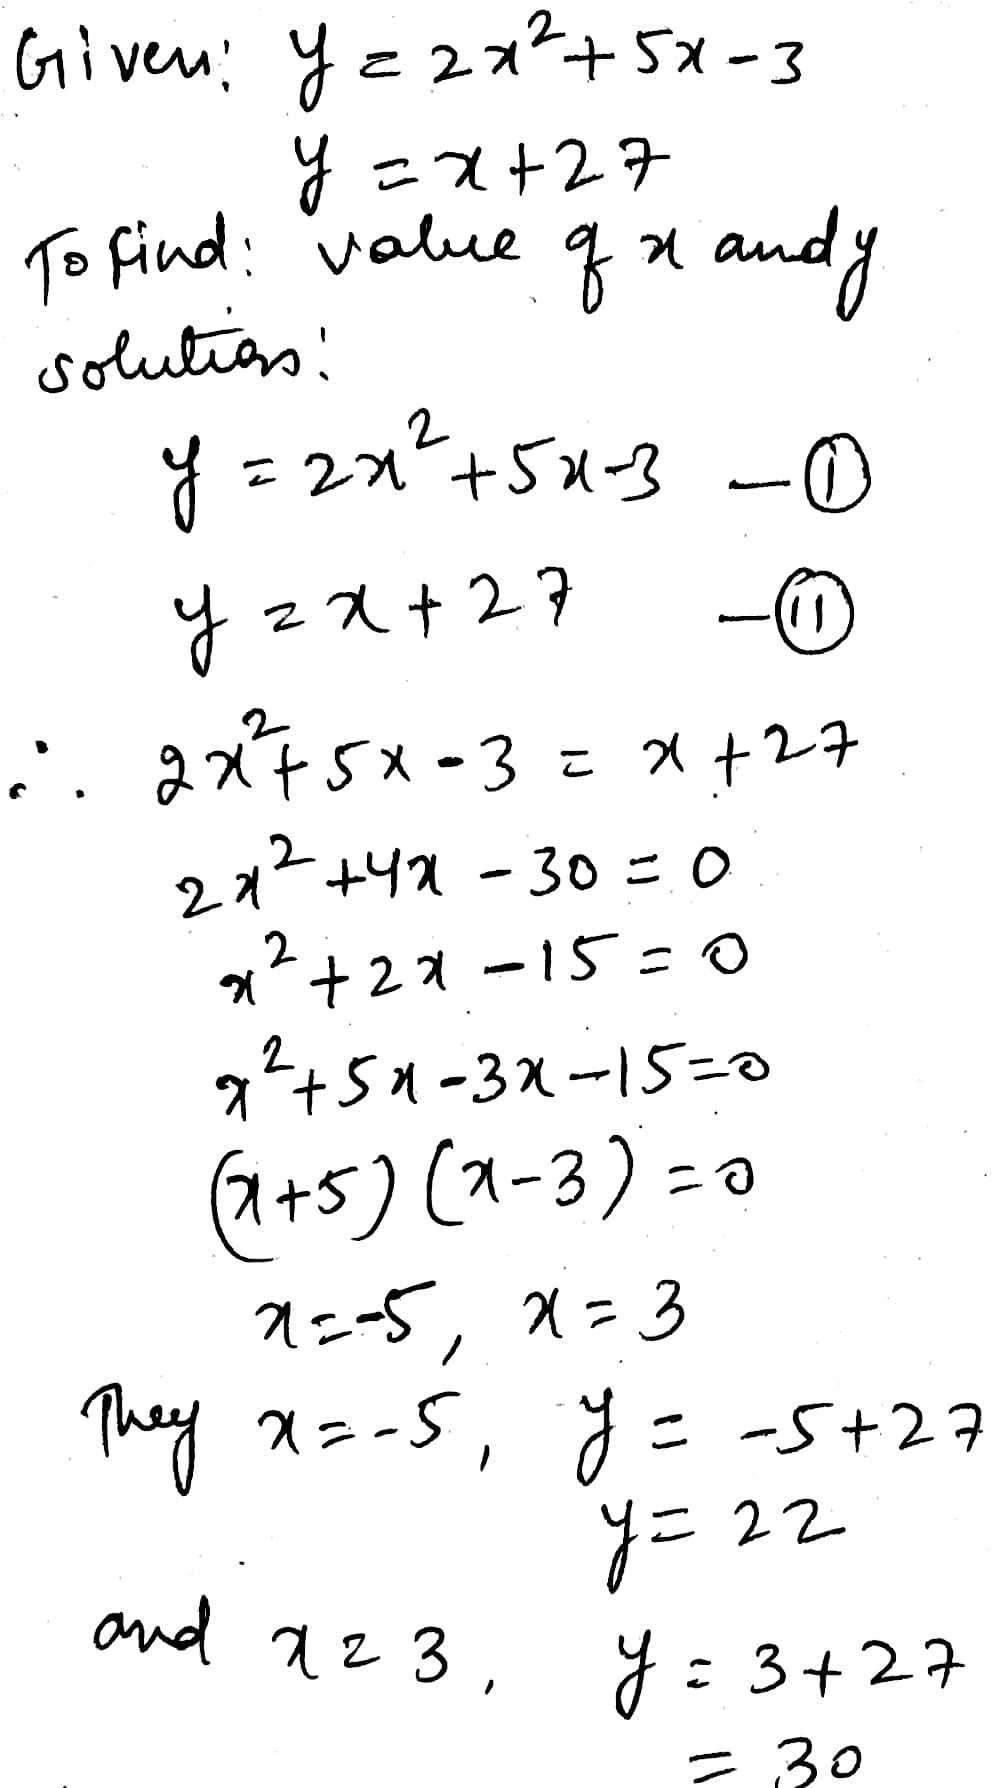 Given: y = 2x² + 5x - 3
y = x + 27
To find: value of x and y
solution:
y = 2x² + 5x - 3 — (I)
y = x + 27 — (II)
∴ 2x² + 5x - 3 = x + 27
2x² + 4x - 30 = 0
x² + 2x - 15 = 0
x² + 5x - 3x - 15 = 0
(x+5) (x-3) = 0
x = -5, x = 3
They x = -5, y = -5 + 27
y = 22
and x = 3, y = 3 + 27
= 30